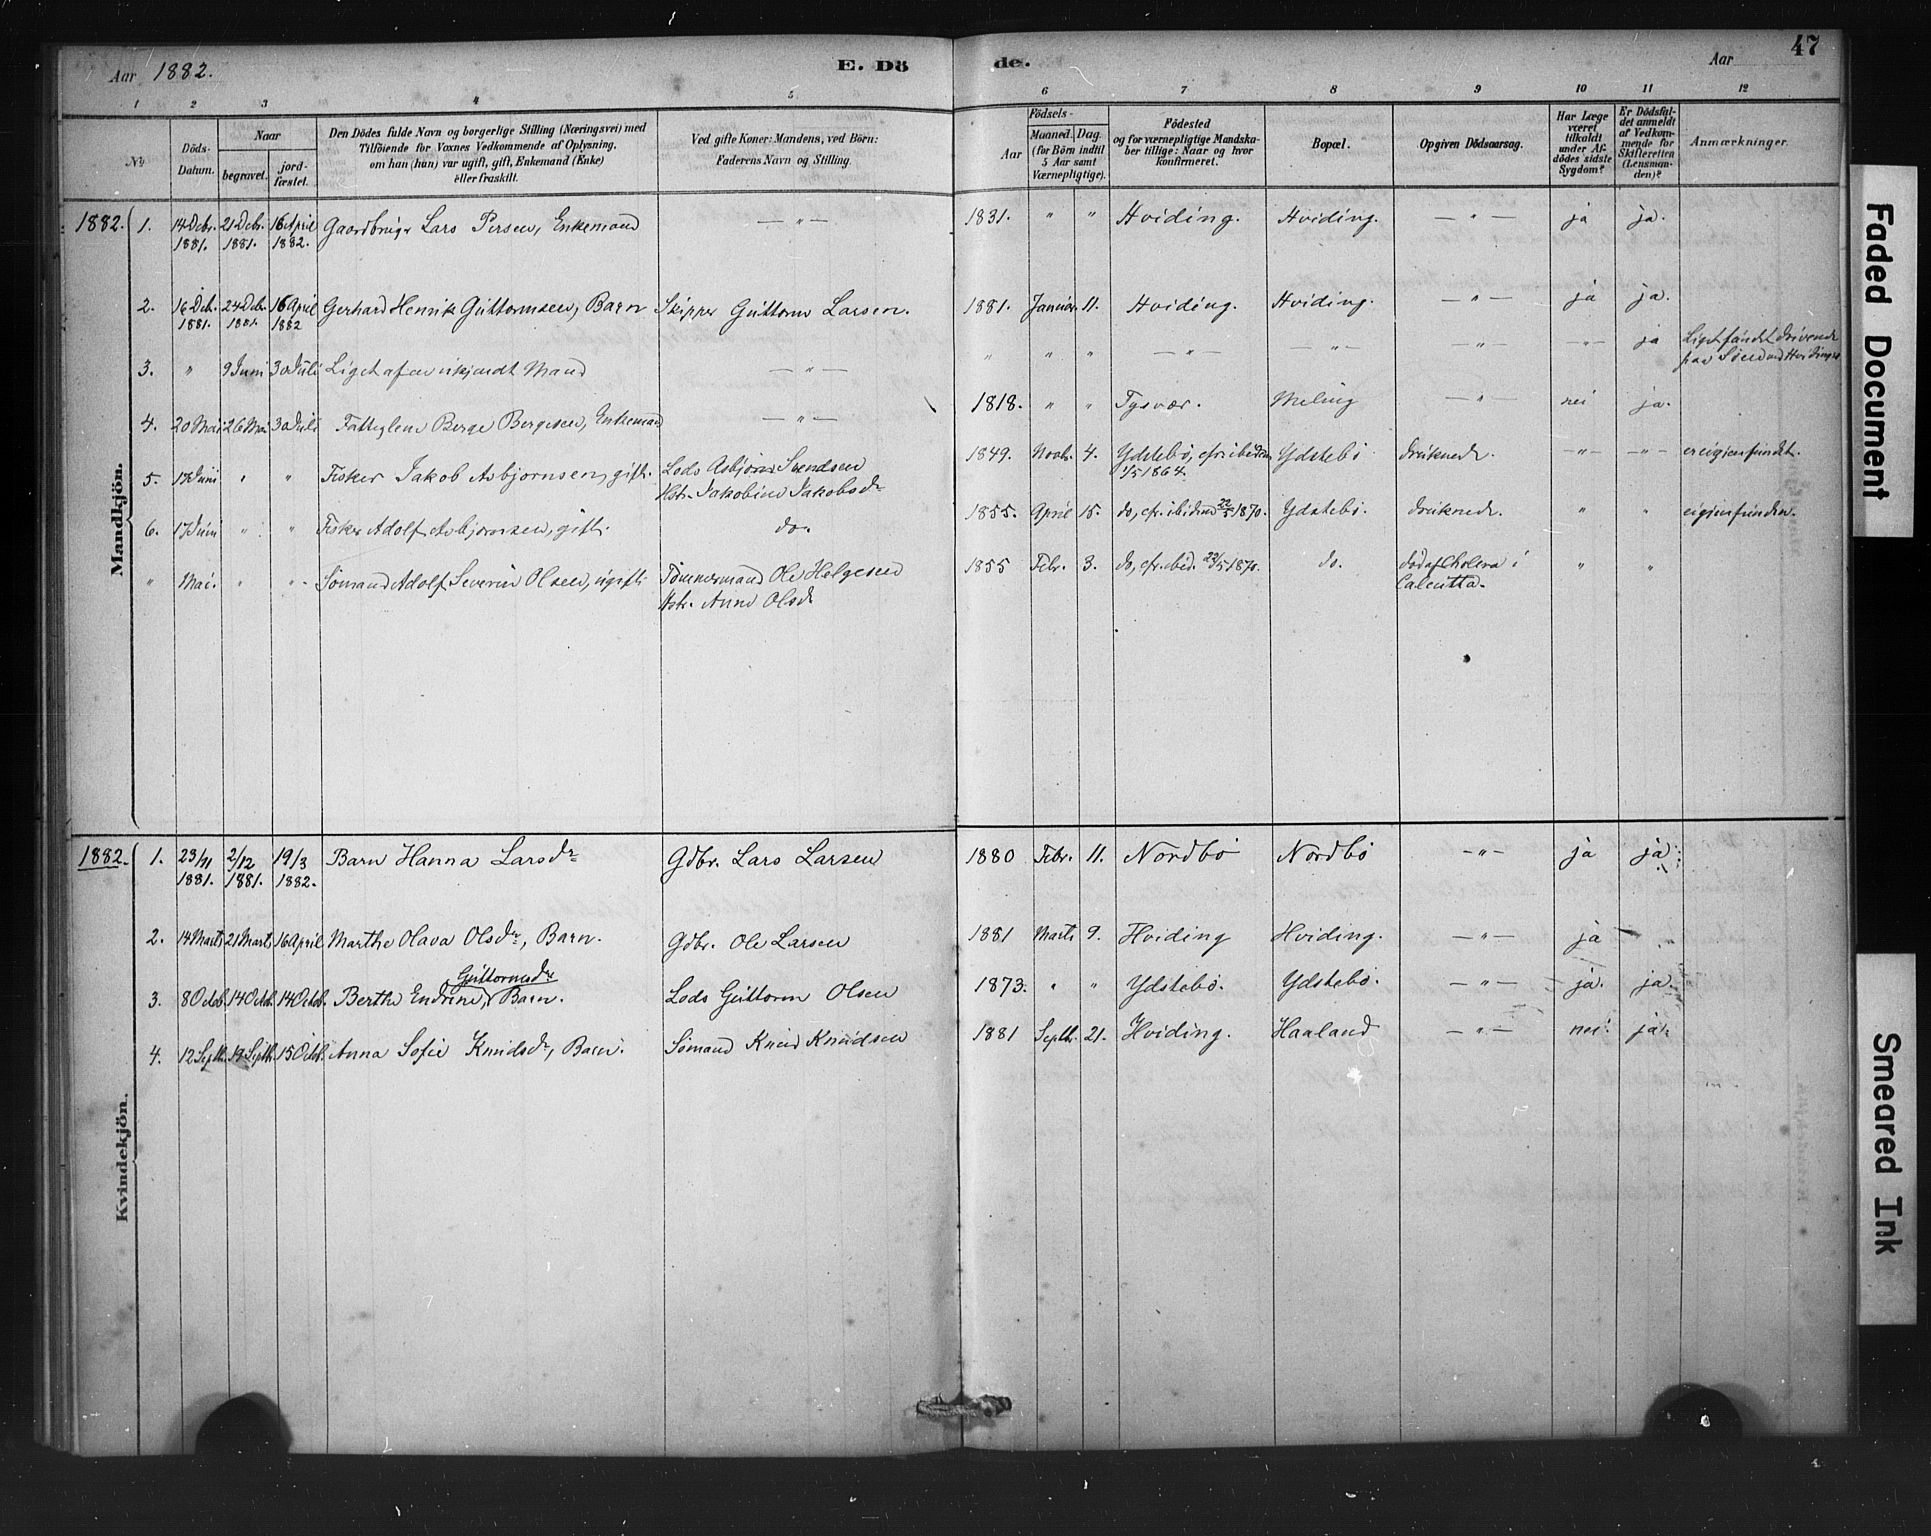 Aar 1882.
E. Dö
de.
Aar
47
1 2 3 4 5
6 7 8 9 10 11 12
No
Döds-
Datum.
Naar
begravet.
jord-
fæstet.
Den Dödes fulde Navn og borgerlige Stilling (Næringsvei) med
Tilföiende for Voxnes Vedkommende af Oplysning,
om han (hun) var ugift, gift, Enkemand (Enke)
eller fraskilt.
Ved gifte Koner: Mandens, ved Börn:
Faderens Navn og Stilling.
Födsels-
Aar
Maaned. Dag.
(for Börn indtil
5 Aar samt
Værnepligtige).
Födested
og for værnepligtige Mandska-
ber tillige: Naar og hvor
konfirmeret.
Bopæl.
Opgiven Dödsaarsag.
Har Læge
været
tilkaldt
under Af-
dödes sidste
Sygdom?
Er Dödsfal-
det anmeldt
af Vedkom-
mende for
Skifteretten
(Lensman-
den)?
Anmærkninger.
Mandkjön.
1882. 1. 14 Debr. 1881. 21 Debr. 1881. 16 April 1882. Gaardbruger Lars Persen, Enkemand — " — 1831. " " Hviding. Hviding. — " — ja ja.
2. 16 Deb. 1881. 24 Deb. 1881. 16 April 1882 Gerhard Henrik Guttormsen, Barn Skipper Guttorm Larsen. 1881. Januar 11. Hviding. Hviding. — " — ja ja.
3. " 9 Juni 30 Juli Liget af en ukjendt Mand — " — " " " — " — — " — — " — — " — ja Liget fundet drivende
paa Söen ved Hvidingsö
4. 20 Mai 26 Mai 30 Juli Fattiglem Berge Bergesen, Enkemand — " — 1818. " " Tysvær. Meling — " — nei ja.
5. 17 Juni " " Fisker Jakob Asbjornsen, gift. Lods Asbjörn Svendsen
Hstr. Jakobine Jakobsdr 1849. Novbr. 4. Ydstebö, cfr. ibidem
1/5 1864. Ydstebö druknede. — " — — " — er eigjenfundet.
6. 17 Juni " " Fisker Adolf Asbjörnsen, gift. do. 1855. April 15. do, cfr. ibidem 22/5 1870. Ydstebö. druknede. " " eigjenfunden.
" Mai. " " Sömand Adolf Severin Olsen, ugift Tömmermand Ole Helgesen
Hstr. Anne Olsdr 1855 Febr. 3. do, cfr. ibid. 22/5 1870. do. död af Cholera i
Calcutta. " "
Kvindekjön.
1882. 1. 23/11 1881. 2/12 1881. 19/3 1882. Barn Hanna Larsdr Gdbr. Lars Larsen 1880 Febr. 11. Nordbö Nordbö — " — ja ja.
2. 14 Marts 21 Marts 16 April Marthe Olava Olsdr, Barn. Gdbr. Ole Larsen 1881 Marts 9. Hviding Hviding. — " — ja
3. 8 Octob. 14 Octob. 14 Octob. Berthe Endrine Guttormsdr, Barn. Lods Guttorm Olsen 1873. " " Ydstebö. Ydstebö. — " — ja. ja.
4. 12 Septb. 19 Septb. 15 Octob. Anna Sofie Knudsdr, Barn. Sömand Knud Knudsen 1881 Septbr. 21. Hviding. Haaland — " — nei. ja.
Faded Document
Smeared Ink